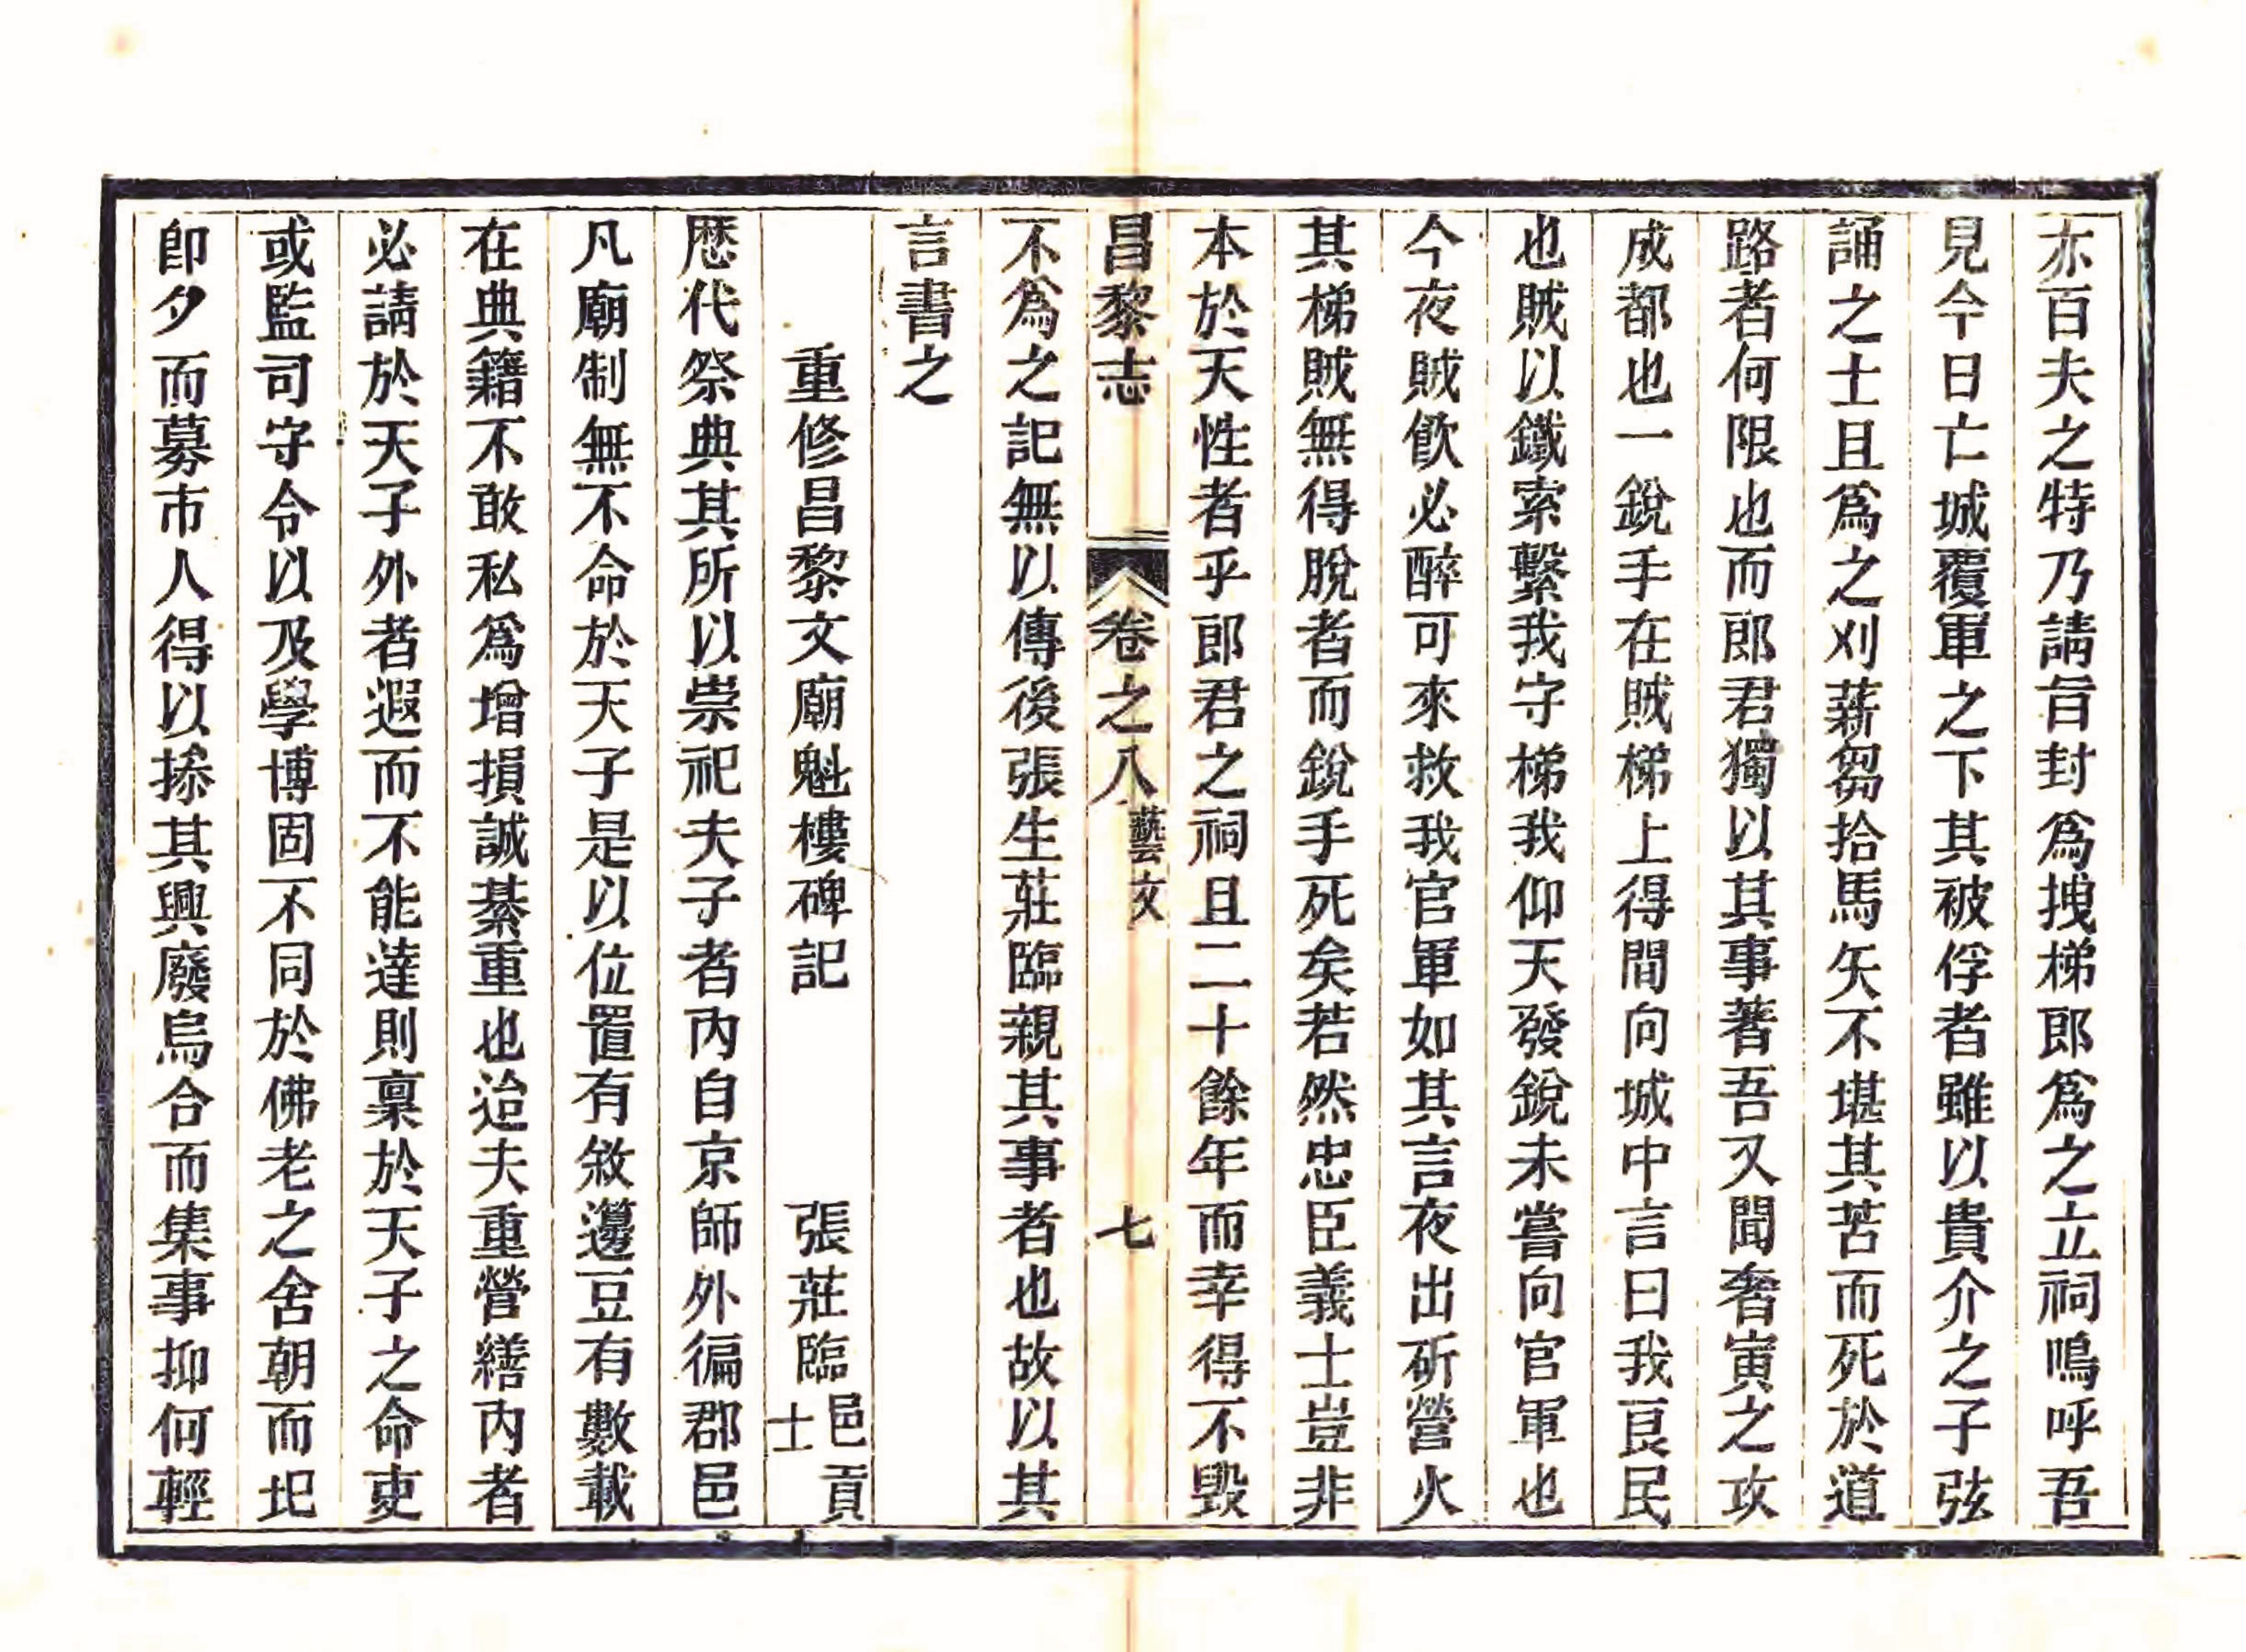 亦百夫之特乃請旨封爲拽梯郎爲之立祠嗚呼吾
見今日亡城覆軍之下其被俘者雖以貴介之子弦
誦之士且爲之刈薪芻拾馬矢不堪其苦而死於道
路者何限也而郎君獨以其事著吾又聞奢寅之攻
成都也一銳手在賊梯上得間向城中言曰我良民
也賊以鐵索繫我守梯我仰天發銳未嘗向官軍也
今夜賊飲必醉可來救我官軍如其言夜出斫營火
其梯賊無得脫者而銳手死矣若然忠臣義士豈非
本於天性者乎郎君之祠且二十餘年而幸得不毀
昌黎志 卷之八 藝文 七
不爲之記無以傳後張生莊臨親其事者也故以其
言書之
重修昌黎文廟魁樓碑記 張莊臨 邑貢士
歷代祭典其所以崇祀夫子者內自京師外徧郡邑
凡廟制無不命於天子是以位置有敘籩豆有數載
在典籍不敢私爲增損誠綦重也迨夫重營繕內者
必請於天子外者遐而不能達則稟於天子之命吏
或監司守令以及學博固不同於佛老之舍朝而圯
卽夕而募市人得以搽其興廢烏合而集事抑何輕